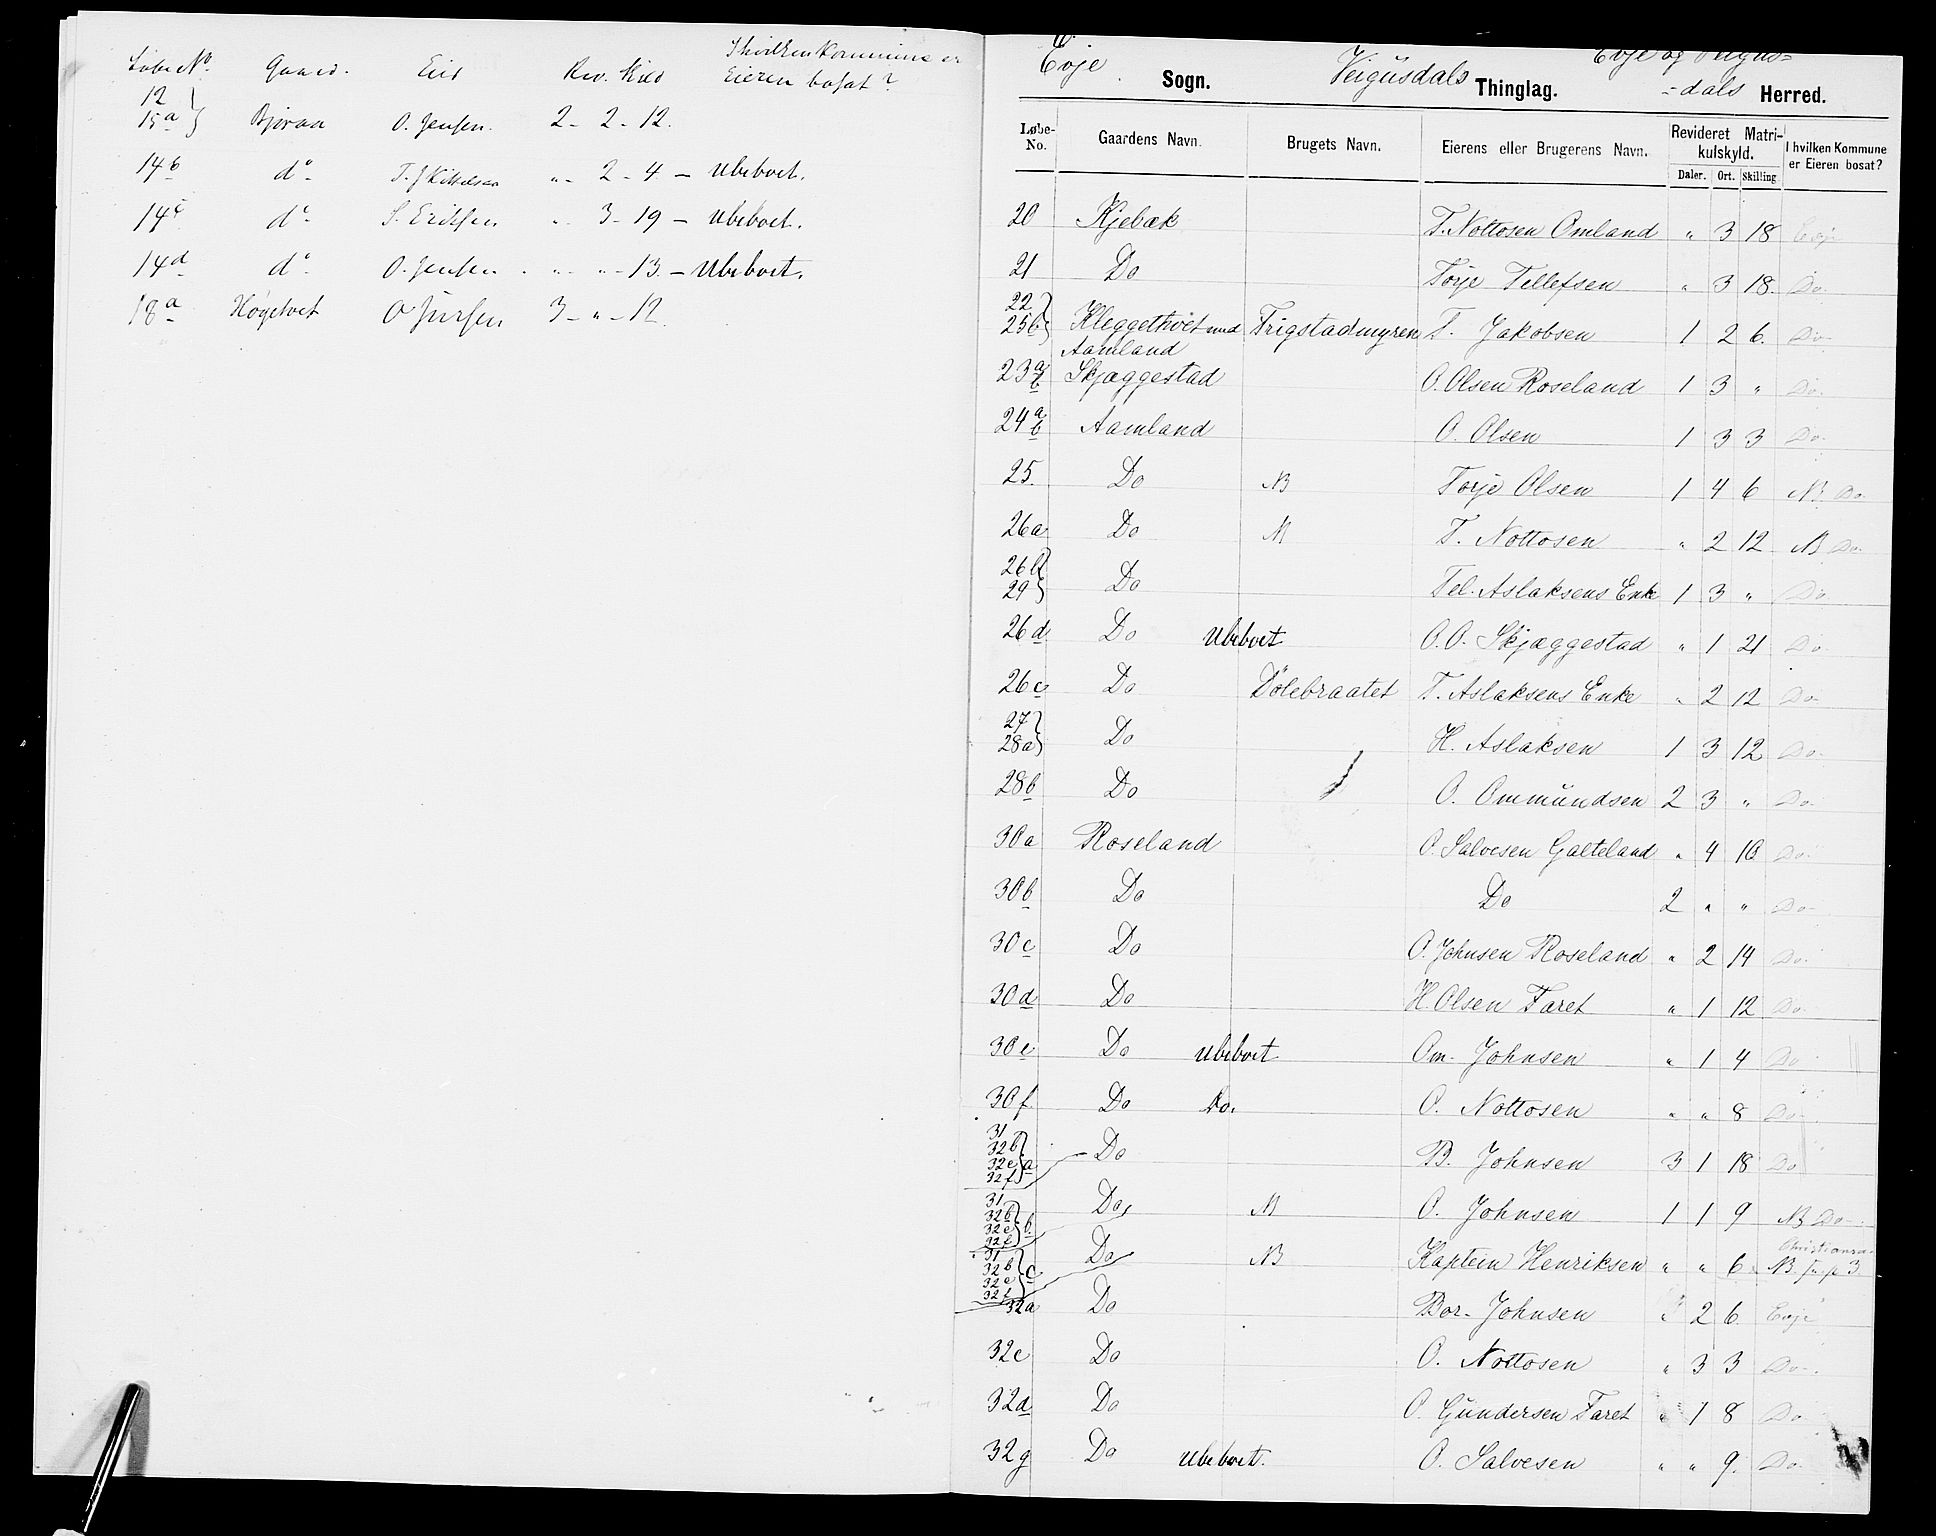 Løbe No. Gaard. Eier Rev. Skld I hvilken Kommune er Eieren bosat?
12
15a } Bjoraa O. Jensen. 2 - 2 - 12.
14b do - T. J. Kittelsen " - 2 - 4 - Ubeboet.
14c do - S. Eriksen " - 3 - 19 - Ubeboet.
14d do - O. Jensen - " - " - 13 - Ubeboet.
18a Høgetvet O Jensen 3 - " - 12
Evje Sogn. Veigusdals Thinglag. Evje og Veigus-
-dals Herred.
Løbe-No. Gaardens Navn. Brugets Navn. Eierens eller Brugerens Navn. Revideret Matrikulskyld. Daler. Ort. Skilling I hvilken Kommune er Eieren bosat?
20 Kjebæk T. Nottosen Omland " 3 18 Evje
21 Do Torje Tellefsen " 3 18 Do
22
25b } Kleggethvet med Aamland Frigstadmyren T. Jakobsen 1 2 6 Do
23a b Skjæggestad O. Olsen Roseland 1 3 " Do
24a b Aamland O. Olsen 1 3 3 Do
25. Do NB Torje Olsen 1 4 6 NB Do
26a Do NB T. Nottosen " 2 12 NB Do
26b
29 } Do Tel. Aslaksens Enke 1 3 " Do
26d Do Ubeboet O. O. Skjæggestad " 1 21 Do
26c Do Dølebraatet T. Aslaksens Enke " 2 12 Do
27
28a } Do H. Aslaksen 1 3 12 Do
28b Do O. Ommundsen 2 3 " Do
30a Roseland O. Salvesen Galteland " 4 10 Do
30b Do Do 2 " " Do
30c Do O. Johnsen Roseland " 2 14 Do
30d Do H. Olsen Faret " 1 12 Do
30e Do Ubeboet Om. Johnsen " 1 4 Do
30f Do Do. O. Nottosen " " 8 Do
31
32b
32e
32f } a Do B. Johnsen 3 1 18 Do
31
32b
32e
32f } b Do NB O. Johnsen 1 1 9 NB Do
31
32b
32e
32f } c Do NB Kaptein Henriksen " " 6 NB
32a Do Bor. Johnsen " 2 6 Evje
32c Do O. Nottosen " 3 3 Do
32d Do O. Gundersen Faret " 1 8 Do
32g Do Ubeboet. O. Salvesen " " 9. Do